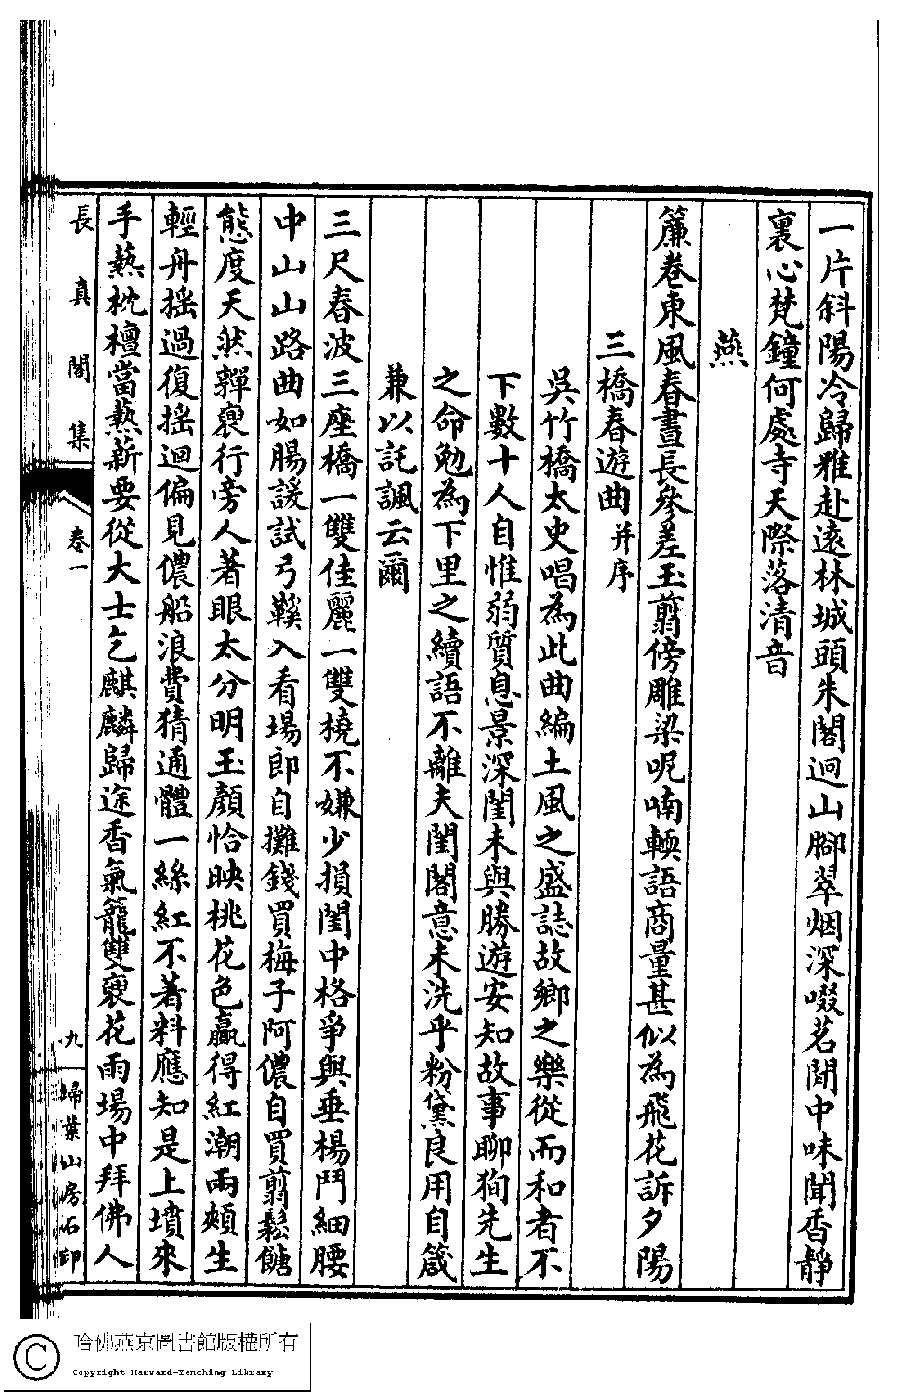 一片斜陽冷歸雅赴遠林城頭朱閣迥山腳翠烟深啜茗閒中味聞香靜
裏心梵鐘何處寺天際落清音
燕
簾卷東風春晝長參差玉翦傍雕梁呢喃輭語商量甚似為飛花訴夕陽
三橋春遊曲并序
吳竹橋太史唱為此曲編土風之盛誌故鄉之樂從而和者不
下數十人自惟弱質息景深閨未與勝遊安知故事聊狥先生
之命勉為下里之續語不離夫閨閣意未洗乎粉黛良用自箴
兼以託諷云爾
三尺春波三座橋一雙佳麗一雙橈不嫌少損閨中格爭與垂楊鬥細腰
中山山路曲如腸諼試弓鞵入看場郎自攤錢買梅子阿儂自買翦鬆餹
態度天然嚲褎行旁人著眼太分明玉顏恰映桃花色贏得紅潮兩頰生
輕舟搖過復搖迴偏見儂船浪費猜通體一絲紅不著料應知是上墳來
手爇枕檀當爇薪要從大士乞麒麟歸途香氣籠雙褎花雨場中拜佛人
長真閣集
卷一
九
歸葉山房石印
哈佛燕京圖書館版權所有
Copyright Harvard-Yenching Library